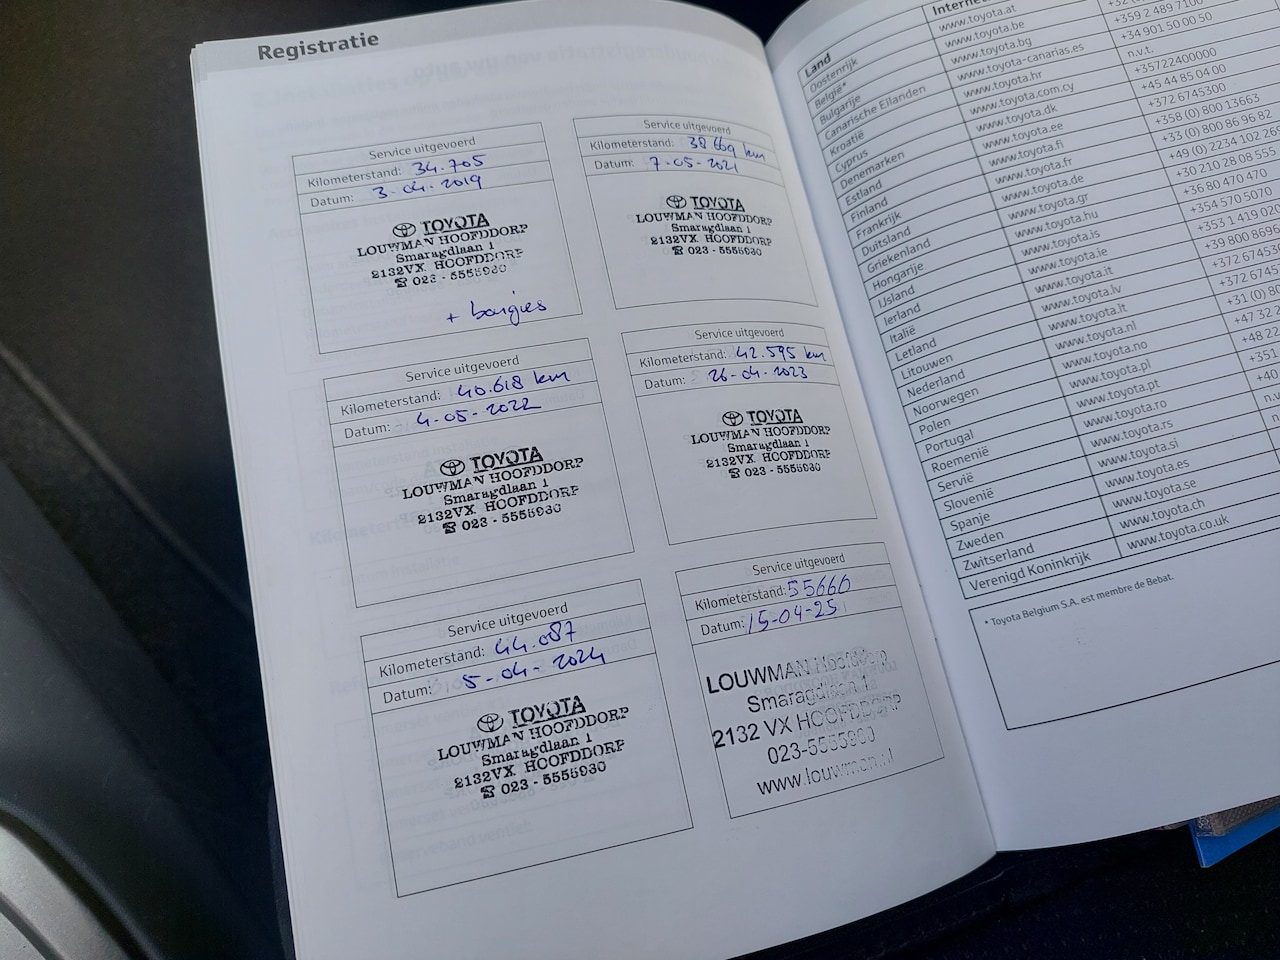 Registratie
Service uitgevoerd
Kilometerstand: 34.705
Datum: 3-04-2019
TOYOTA
LOUWMAN HOOFDDORP
Smaragdlaan 1
2132VX HOOFDDORP
☎ 023 - 5555930
+ bougies
Service uitgevoerd
Kilometerstand: 38 669 km
Datum: 7-05-2021
TOYOTA
LOUWMAN HOOFDDORP
Smaragdlaan 1
2132VX HOOFDDORP
☎ 023 - 5555930
Service uitgevoerd
Kilometerstand: 40.618 km
Datum: 4-05-2022
TOYOTA
LOUWMAN HOOFDDORP
Smaragdlaan 1
2132VX HOOFDDORP
☎ 023 - 5555930
Service uitgevoerd
Kilometerstand: 42.595 km
Datum: 26-04-2023
TOYOTA
LOUWMAN HOOFDDORP
Smaragdlaan 1
2132VX HOOFDDORP
☎ 023 - 5555930
Service uitgevoerd
Kilometerstand: 44.087
Datum: 5-04-2024
TOYOTA
LOUWMAN HOOFDDORP
Smaragdlaan 1
2132VX HOOFDDORP
☎ 023 - 5555930
Service uitgevoerd
Kilometerstand: 55660
Datum: 15-04-25
LOUWMAN Hoofddorp
Smaragdlaan 1
2132 VX HOOFDDORP
023-5555930
www.louwman.nl
Land
Oostenrijk www.toyota.at
België* www.toyota.be
Bulgarije www.toyota.bg +359 2 489 7100
Canarische Eilanden www.toyota-canarias.es +34 901 50 00 50
Kroatië www.toyota.hr n.v.t.
Cyprus www.toyota.com.cy +35722400000
Denemarken www.toyota.dk +45 44 85 04 00
Estland www.toyota.ee +372 6745300
Finland www.toyota.fi +358 (0) 800 13663
Frankrijk www.toyota.fr +33 (0) 800 86 96 82
Duitsland www.toyota.de +49 (0) 2234 102 2
Griekenland www.toyota.gr +30 210 28 08 555
Hongarije www.toyota.hu +36 80 470 470
IJsland www.toyota.is +354 570 5070
Ierland www.toyota.ie +353 1 419 02
Italië www.toyota.it +39 800 8696
Letland www.toyota.lv +372 674530
Litouwen www.toyota.lt +372 6745
Nederland www.toyota.nl +31 (0) 80
Noorwegen www.toyota.no +47 32 2
Polen www.toyota.pl +48 22
Portugal www.toyota.pt +351
Roemenië www.toyota.ro +40
Servië www.toyota.rs
Slovenië www.toyota.si
Spanje www.toyota.es
Zweden www.toyota.se
Zwitserland www.toyota.ch
Verenigd Koninkrijk www.toyota.co.uk
* Toyota Belgium S.A. est membre de Bebat.